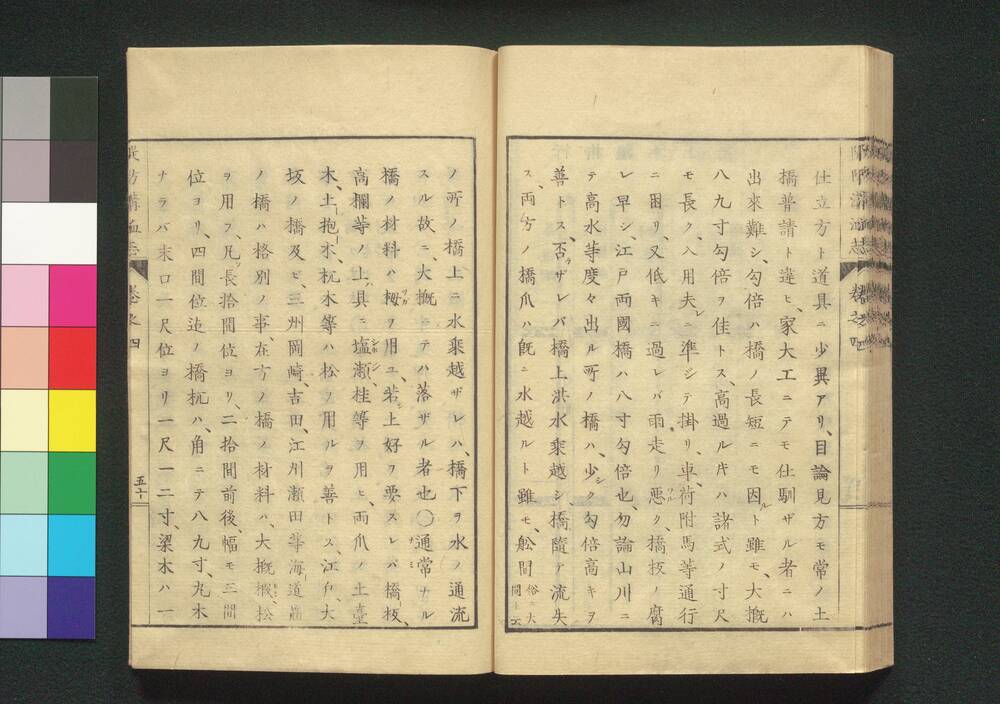 仕立方ト道具ニ少異アリ、目論見方モ常ノ土
橋普請ト違ヒ、家大工ニテモ仕馴ザル者ニハ
出來難シ、勾倍ハ橋ノ長短ニモ因ルト雖モ、大概
八九寸勾倍ヲ佳トス、高過ル時ハ諸式ノ寸尺
モ長ク、入用夫レニ準ジテ掛リ、車荷附馬等通行
ニ困リ、又低キニ過レバ雨走リ悪ク、橋板ノ腐
レ早シ、江戸両國橋ハ八寸勾倍也、勿論山川ニ
テ高水等度々出ル所ノ橋ハ、少シク勾倍高キヲ
善トス、否ラザレバ橋上洪水乘越シ、橋隨テ流失
ス、両方ノ橋爪ハ既ニ水越ルト雖モ、舩間俗ニ大間ト云
ノ所ノ橋上ニ水乘越ザレハ、橋下ヲ水ノ通流
スル故ニ、大概ニテハ落ザル者也〇通常ナル
橋ノ材料ハ栂ヲ用ユ、若シ上好ヲ要スレバ橋板、
高欄等ノ上具ニ塩瀬桂等ヲ用ヒ、両爪ノ土臺
木、土抱木、杭木等ハ松ヲ用ルヲ善トス、江戸、大
坂ノ橋及ビ、三州岡崎、吉田、江州瀬田等海道
ノ橋ハ格別ノ事、在方ノ橋ノ材料ハ、大概椴、松
ヲ用フ、凡ソ長拾間位ヨリ、二拾間前後、幅モ三間
位ヨリ、四間位迠ノ橋杭ハ、角ニテ八九寸、丸木
ナラバ末口一尺位ヨリ一尺一二寸、梁木ハ一
五十